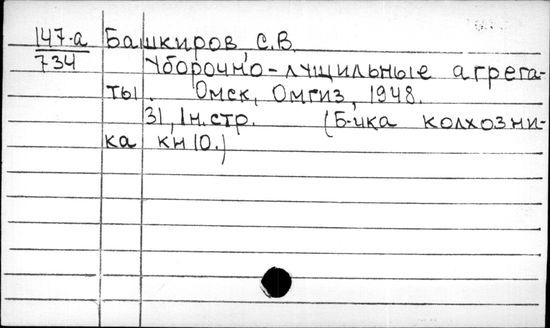 147-а Башкиров, С.В.
734 Уборочно-лущильные агрега-
ты. Омск, Омгиз, 1948.
31, 1н.стр. (Б-ика колхозни-
ка кн 10.)